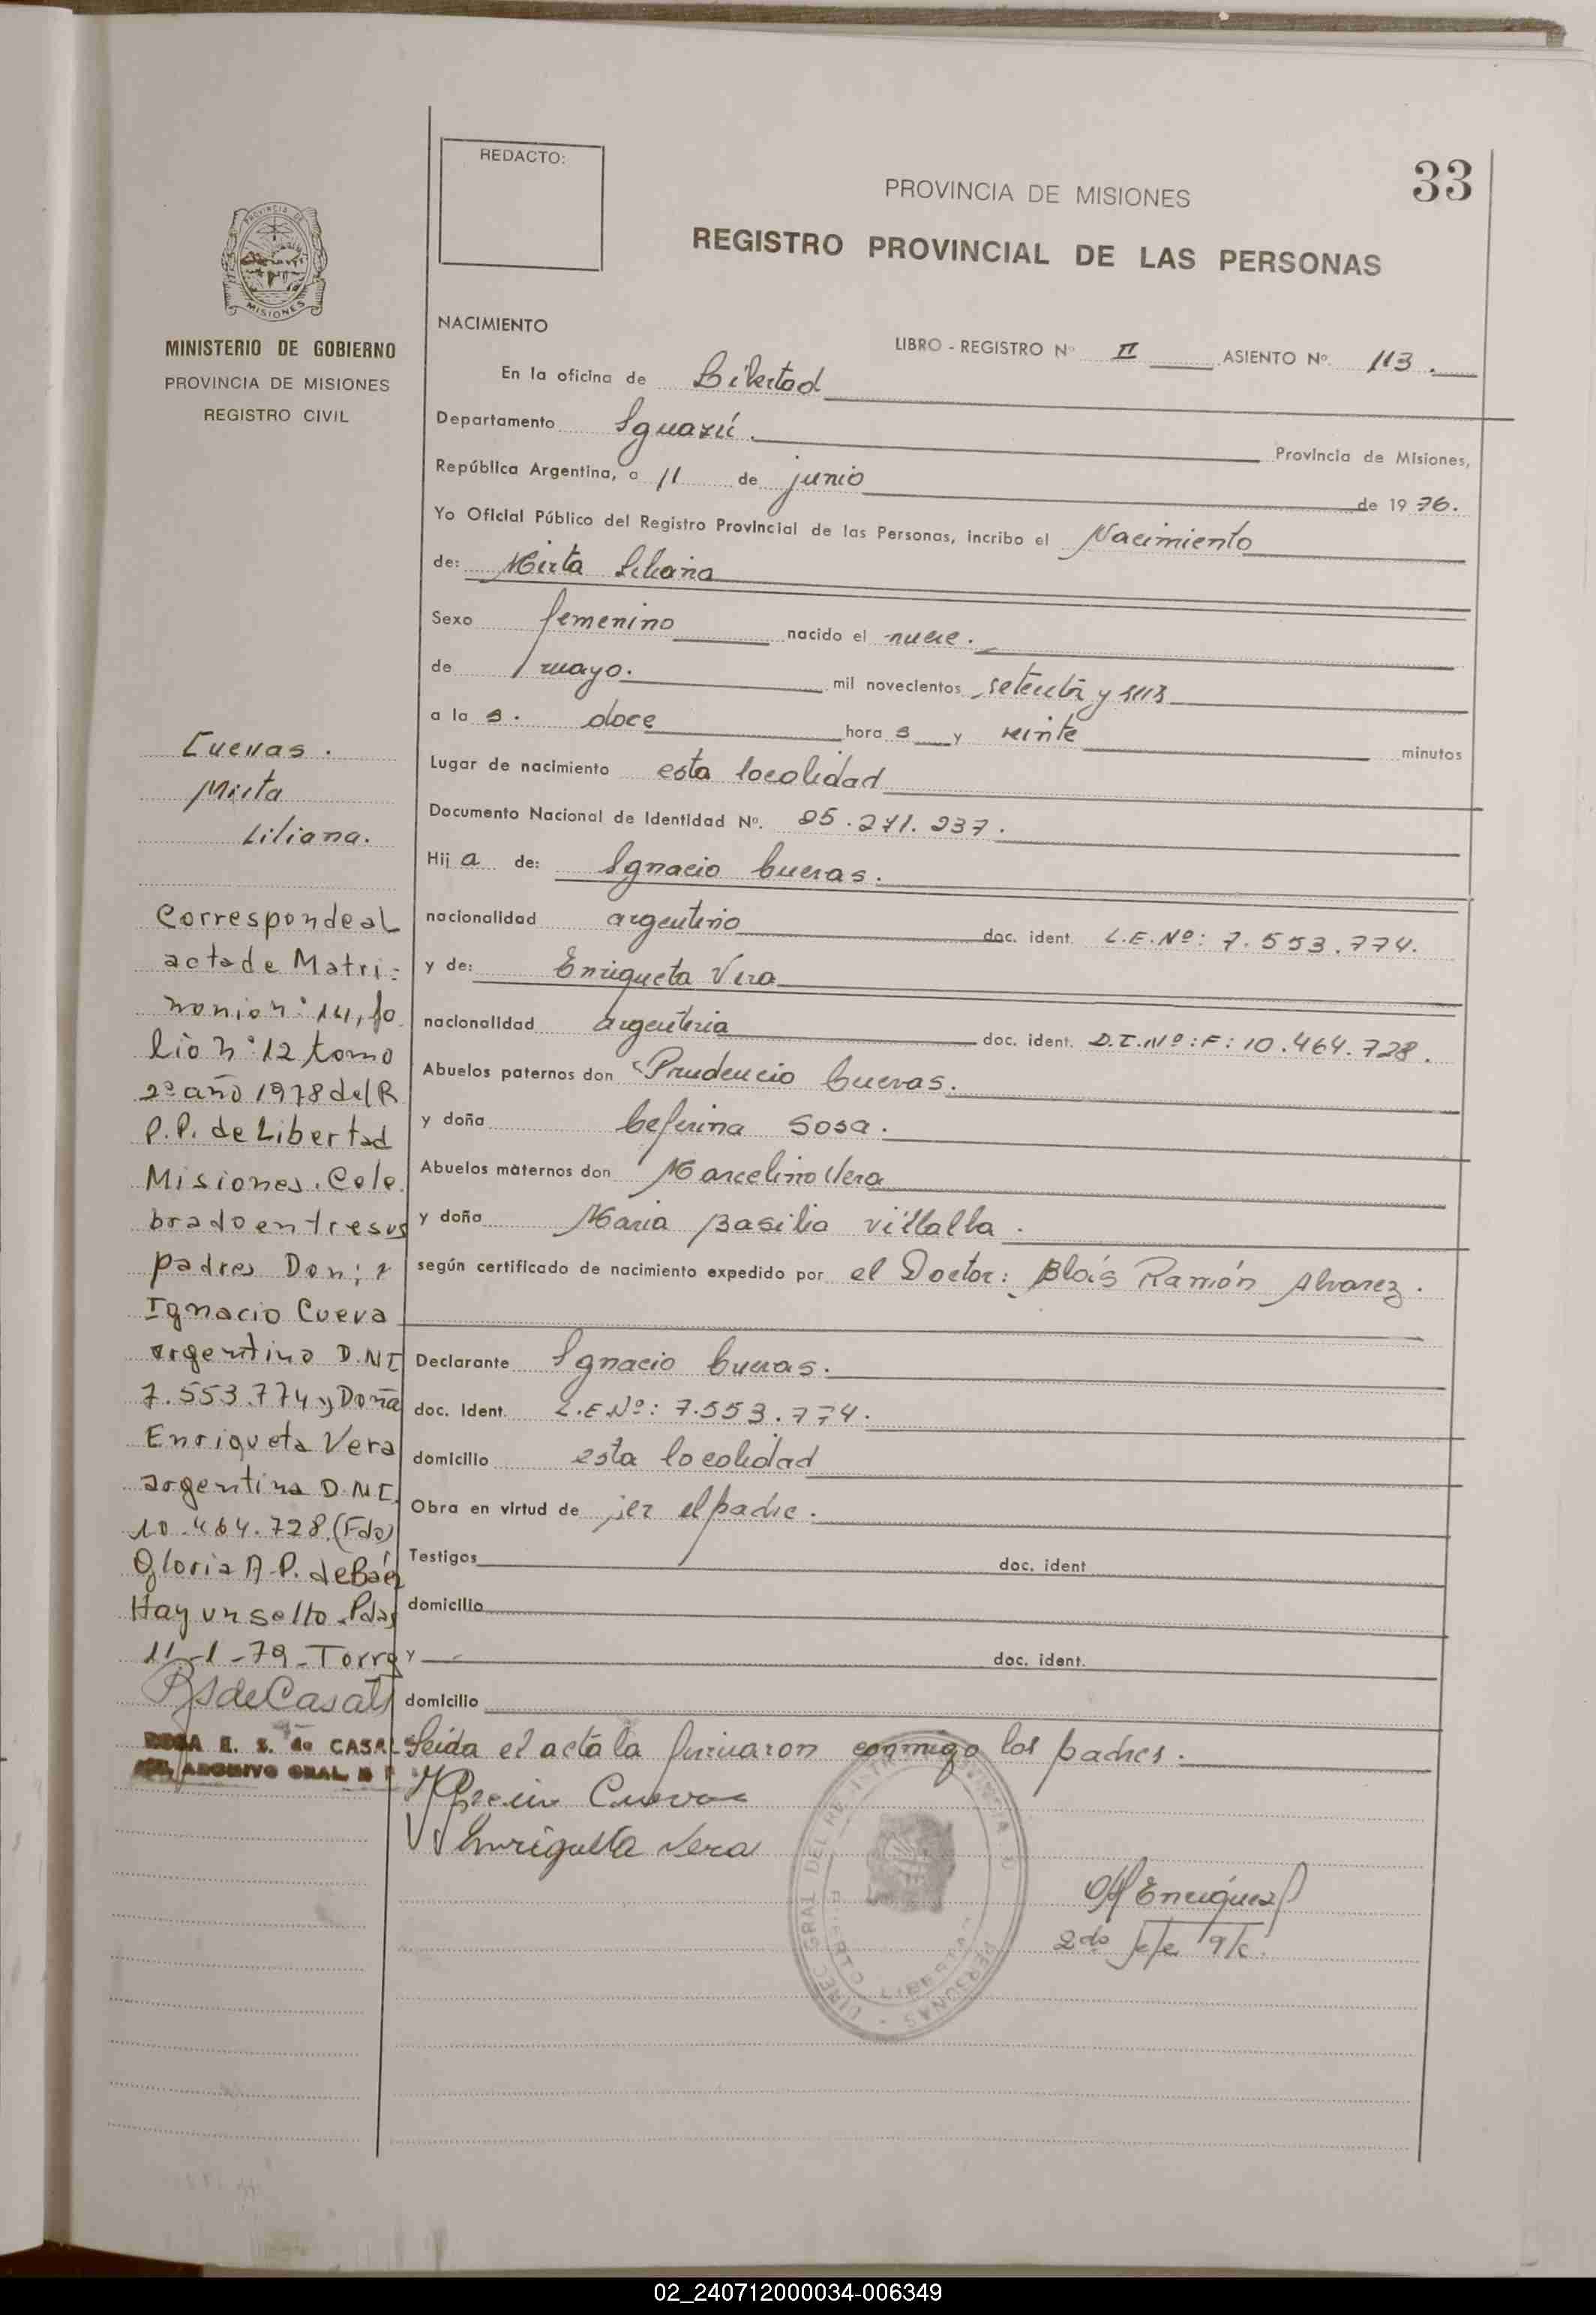 33
REDACTO:
PROVINCIA DE MISIONES
REGISTRO PROVINCIAL DE LAS PERSONAS
PROVINCIA DE
MISIONES
MINISTERIO DE GOBIERNO
PROVINCIA DE MISIONES
REGISTRO CIVIL
NACIMIENTO
LIBRO - REGISTRO Nº II ASIENTO Nº. 113.
En la oficina de Libertad
Departamento Iguazú. Provincia de Misiones,
República Argentina, a 11 de junio de 1976.
Yo Oficial Público del Registro Provincial de las Personas, incribo el Nacimiento
de: Mirta Liliana
Sexo femenino nacido el nueve.
de mayo. mil novecientos setenta y seis
a las. doce horas y veinte minutos
Lugar de nacimiento esta localidad
Documento Nacional de Identidad Nº. 25.271.237.
Hija de: Ignacio Cuevas.
nacionalidad argentino doc. ident. L.E.Nº: 7.553.774.
y de: Enriqueta Vera
nacionalidad argentina doc. ident. D.I.Nº:F: 10.464.728.
Abuelos paternos don Prudencio Cuevas.
y doña Ceferina Sosa.
Abuelos maternos don Marcelino Vera
y doña Maria Basilia Villalba.
según certificado de nacimiento expedido por el Doctor: Blás Ramón Alvarez.
Declarante Ignacio Cuevas.
doc. Ident. L.E.Nº: 7.553.774.
domicilio esta localidad
Obra en virtud de ser el padre.
Testigos doc. ident
domicilio
y doc. ident.
domicilio
Leida el acta la firmaron conmigo los padres.
Cuevas
Enriqueta Vera
Enriquez
2do Jefe a/c.
Cuevas.
Mirta
Liliana.
Corresponde al
acta de Matri=
monio nº 14, fo
lio nº 12 tomo
2º año 1978 del R
P.P. de Libertad
Misiones. Cele
brado entre sus
padres Don:
Ignacio Cueva
argentino D.NI
7.553.774 y Doña
Enriqueta Vera
argentina D.N.I.
10.464.728.(Fdo)
Gloria A.P. de Báez
Hay un sello. Pdas
11-1-79-Torre
RS de Casals
ROSA E. S. de CASALS
ARCHIVO GRAL R P
DIREC GRAL DEL REGISTRO PROVINCIA D
PERSONAS
LIBERTAD
02_240712000034-006349